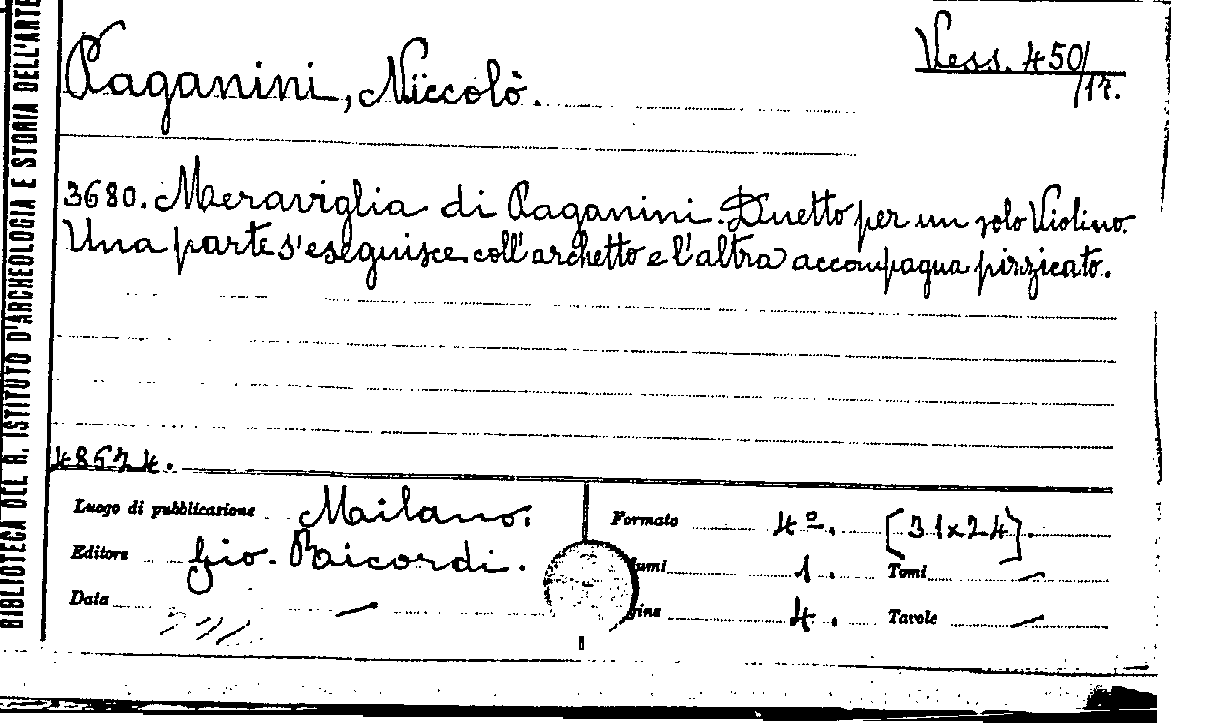 BIBLIOTECA DEL R. ISTITUTO D'ARCHEOLOGIA E STORIA DELL'ARTE
Paganini, Niccolò.
Vess. 450/17.
3680. Meraviglia di Paganini. Duetto per un solo Violino.
Una parte s'eseguisce coll'archetto e l'altra accompagna pizzicato.
48574.
Luogo di pubblicazione Milano.
Editore Gio. Ricordi.
Data —
Formato 4º. [31x24].
lumi 1. Tomi —
gine 4. Tavole —